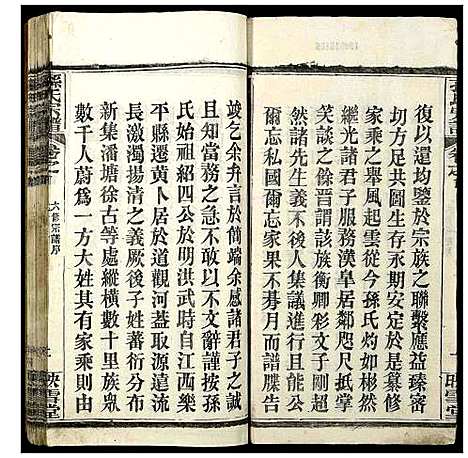 復以還均鑒於宗族之聯繫應益臻密
切方足共圖生存永期安定於是纂修
家乘之舉風起雲從今孫氏灼如彬然
諸君子服務漢皋居鄰咫尺抵掌
笑談之餘晋謂該族衡卿彩文子剛
然然諸先生義不後人集議進行且能公
爾忘私國爾忘家果不朞月而譜牒告
竣乞余弁言於簡端余感諸君子之誠
且知當務之急不敢以不文辭謹按孫
氏始祖紹四公於明洪武時自江西樂
平縣遷黃人居於道觀河蓋取源遠流
長激濁揚清之義厥後子姓蕃衍分布
新集潘塘徐古等處縱橫數十里族眾
數千人蔚為一方大姓其有家乘則由
孫氏宗譜
卷之一
六修宗譜序
映雪堂
映雪堂